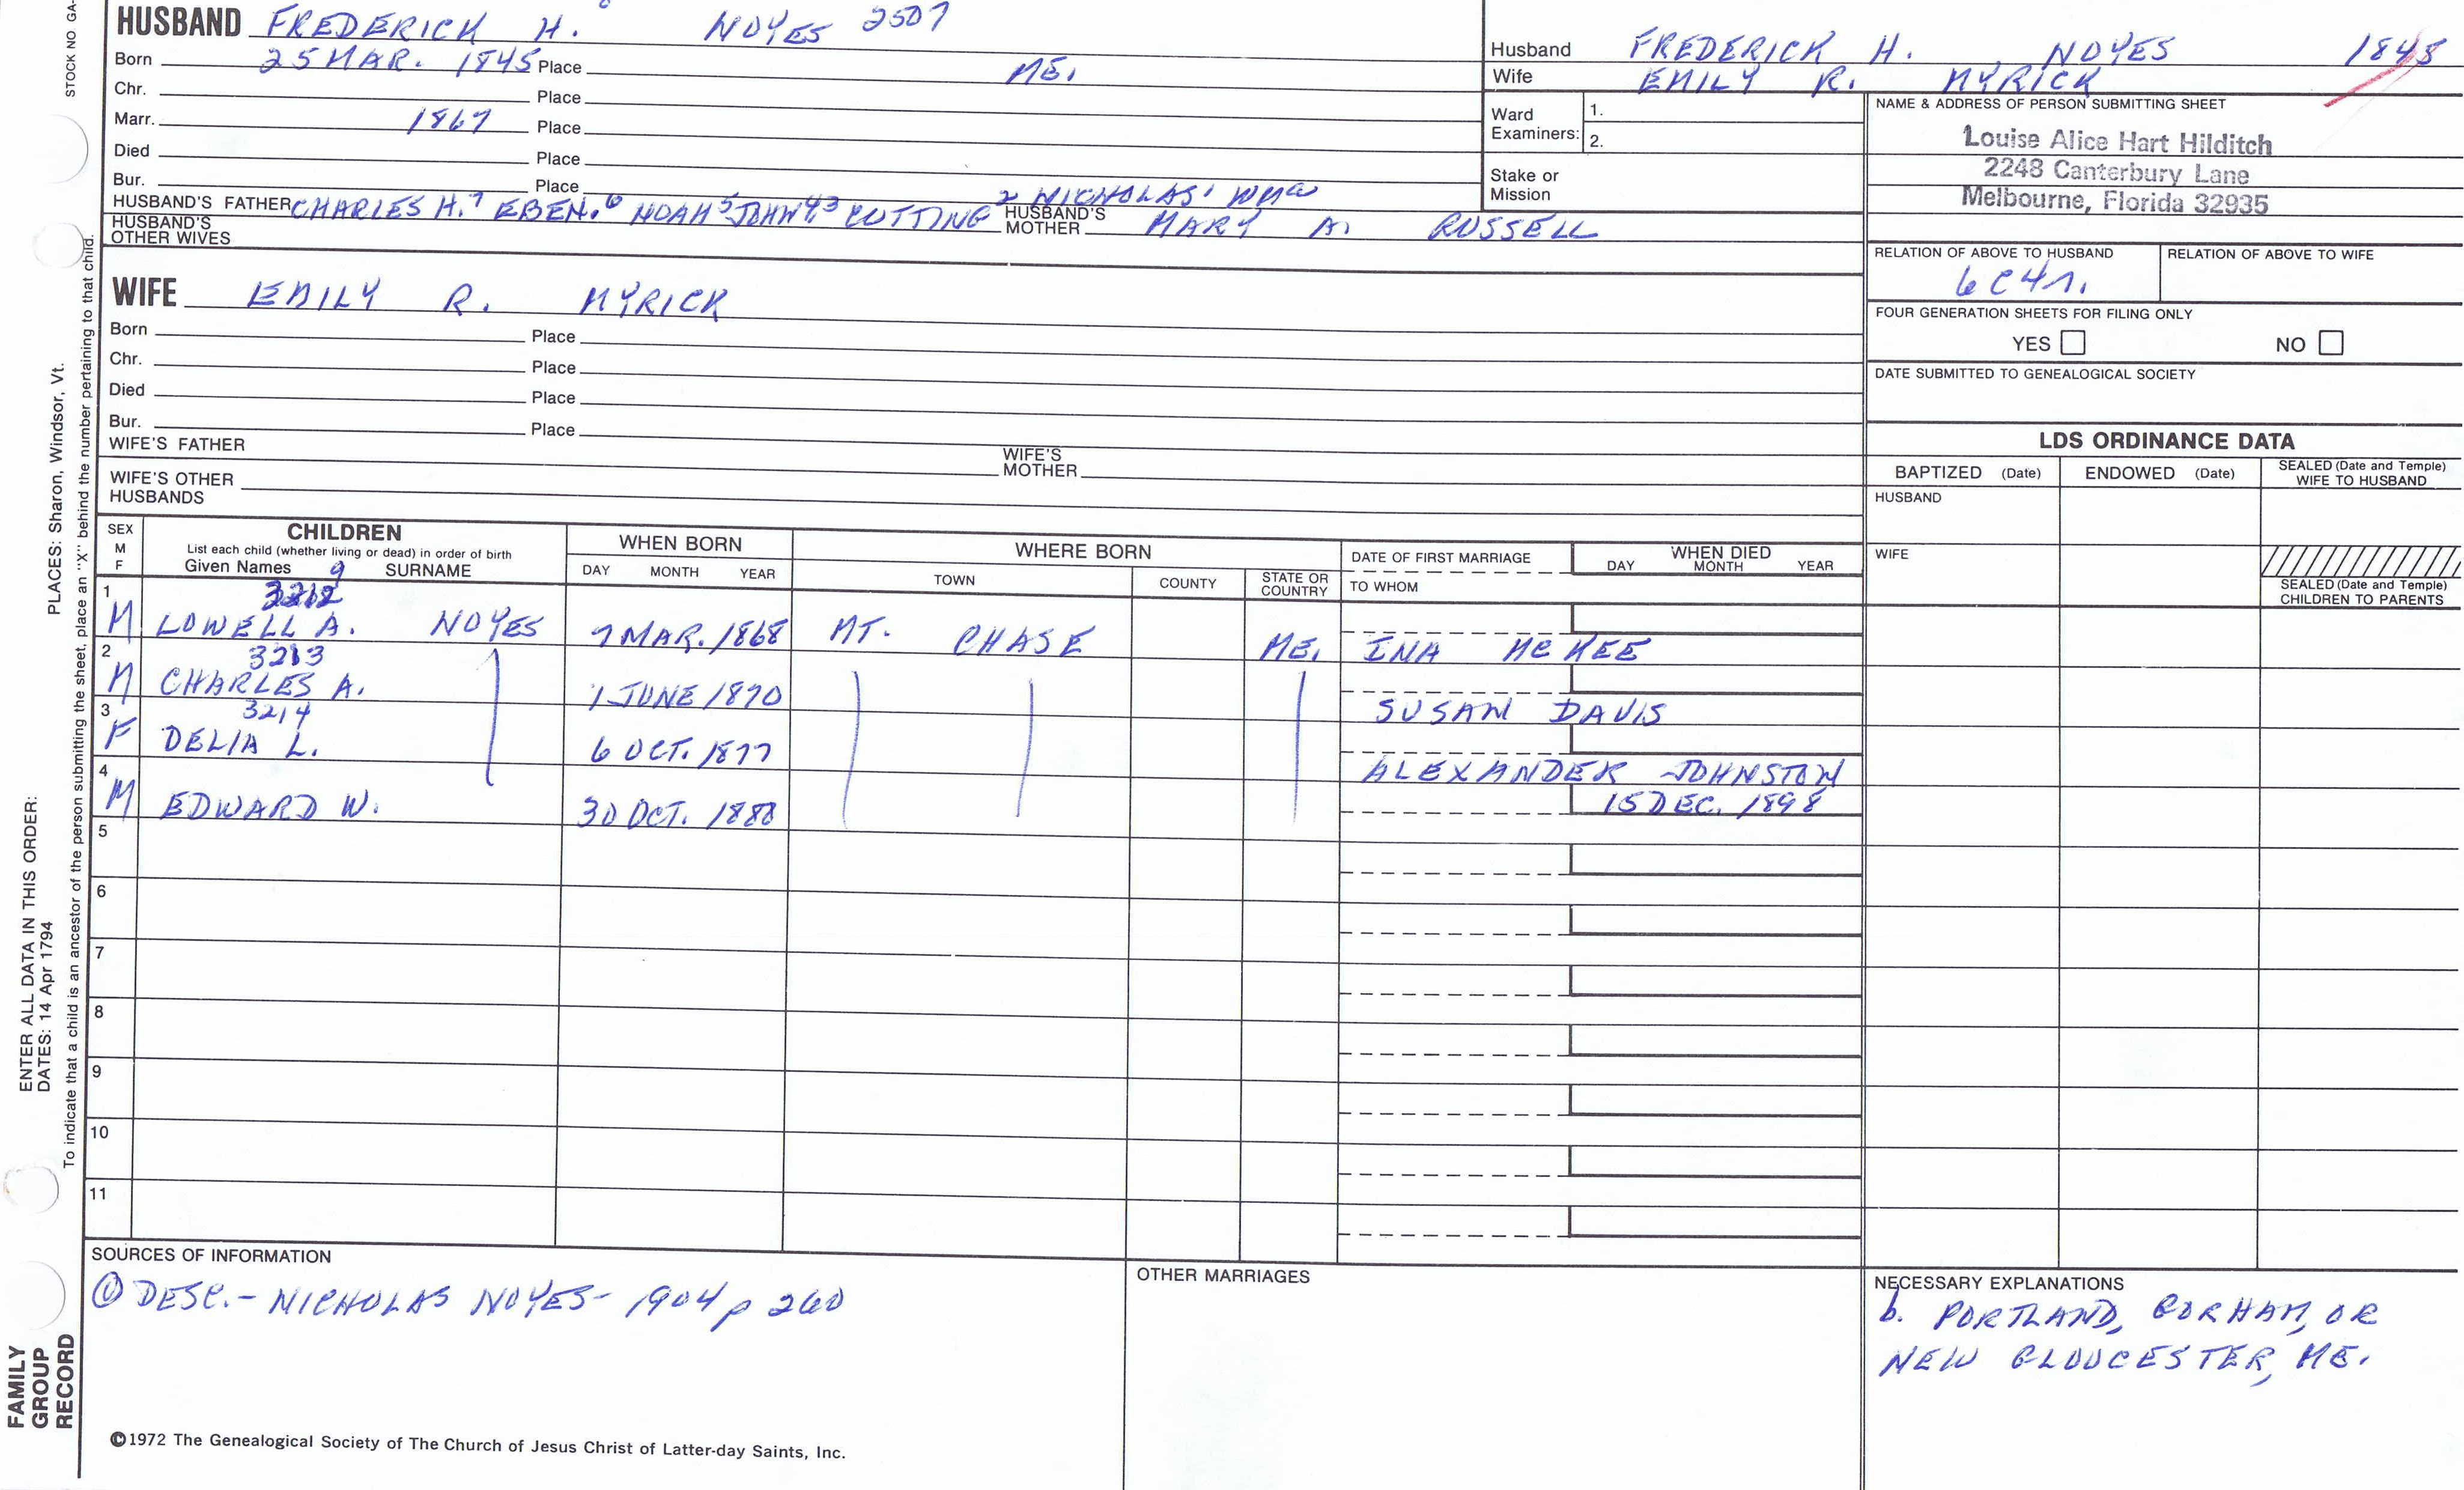 STOCK NO. GA-
PLACES: Sharon, Windsor, Vt.
To indicate that a child is an ancestor of the person submitting the sheet, place an "X" behind the number pertaining to that child.
ENTER ALL DATA IN THIS ORDER:
DATES: 14 Apr 1794
FAMILY
GROUP
RECORD
HUSBAND FREDERICK H. NOYES 2507
Born 25 MAR. 1845 Place ME.
Chr. Place
Marr. 1867 Place
Died Place
Bur. Place
HUSBAND'S FATHER CHARLES H.7 EBEN.6 NOAH5 JOHN4,3 CUTTING2 NICHOLAS1 WMa HUSBAND'S MOTHER MARY A. RUSSELL
HUSBAND'S OTHER WIVES
WIFE EMILY R. MYRICK
Born Place
Chr. Place
Died Place
Bur. Place
WIFE'S FATHER WIFE'S MOTHER
WIFE'S OTHER HUSBANDS
Husband FREDERICK H. NOYES 1845
Wife EMILY R. MYRICK
Ward Examiners: 1.
2.
Stake or Mission
NAME & ADDRESS OF PERSON SUBMITTING SHEET
Louise Alice Hart Hilditch
2248 Canterbury Lane
Melbourne, Florida 32935
RELATION OF ABOVE TO HUSBAND RELATION OF ABOVE TO WIFE
6C4r.
FOUR GENERATION SHEETS FOR FILING ONLY
YES NO
DATE SUBMITTED TO GENEALOGICAL SOCIETY
LDS ORDINANCE DATA
BAPTIZED (Date) ENDOWED (Date) SEALED (Date and Temple) WIFE TO HUSBAND
HUSBAND
WIFE
SEALED (Date and Temple) CHILDREN TO PARENTS
SEX M F
CHILDREN
List each child (whether living or dead) in order of birth
Given Names 9 SURNAME
WHEN BORN
DAY MONTH YEAR
WHERE BORN
TOWN COUNTY STATE OR COUNTRY
DATE OF FIRST MARRIAGE
TO WHOM
WHEN DIED
DAY MONTH YEAR
1 3212
M LOWELL A. NOYES 7 MAR. 1868 MT. CHASE ME. INA McKEE
2 3213
M CHARLES A. 1 JUNE 1870 SUSAN DAVIS
3 3214
F DELIA L. 6 OCT. 1877 ALEXANDER JOHNSTON
4
M EDWARD W. 30 OCT. 1880 15 DEC. 1898
5
6
7
8
9
10
11
SOURCES OF INFORMATION
① DESC. - NICHOLAS NOYES - 1904 p 260
OTHER MARRIAGES
NECESSARY EXPLANATIONS
b. PORTLAND, GORHAM, OR
NEW GLOUCESTER, ME.
©1972 The Genealogical Society of The Church of Jesus Christ of Latter-day Saints, Inc.